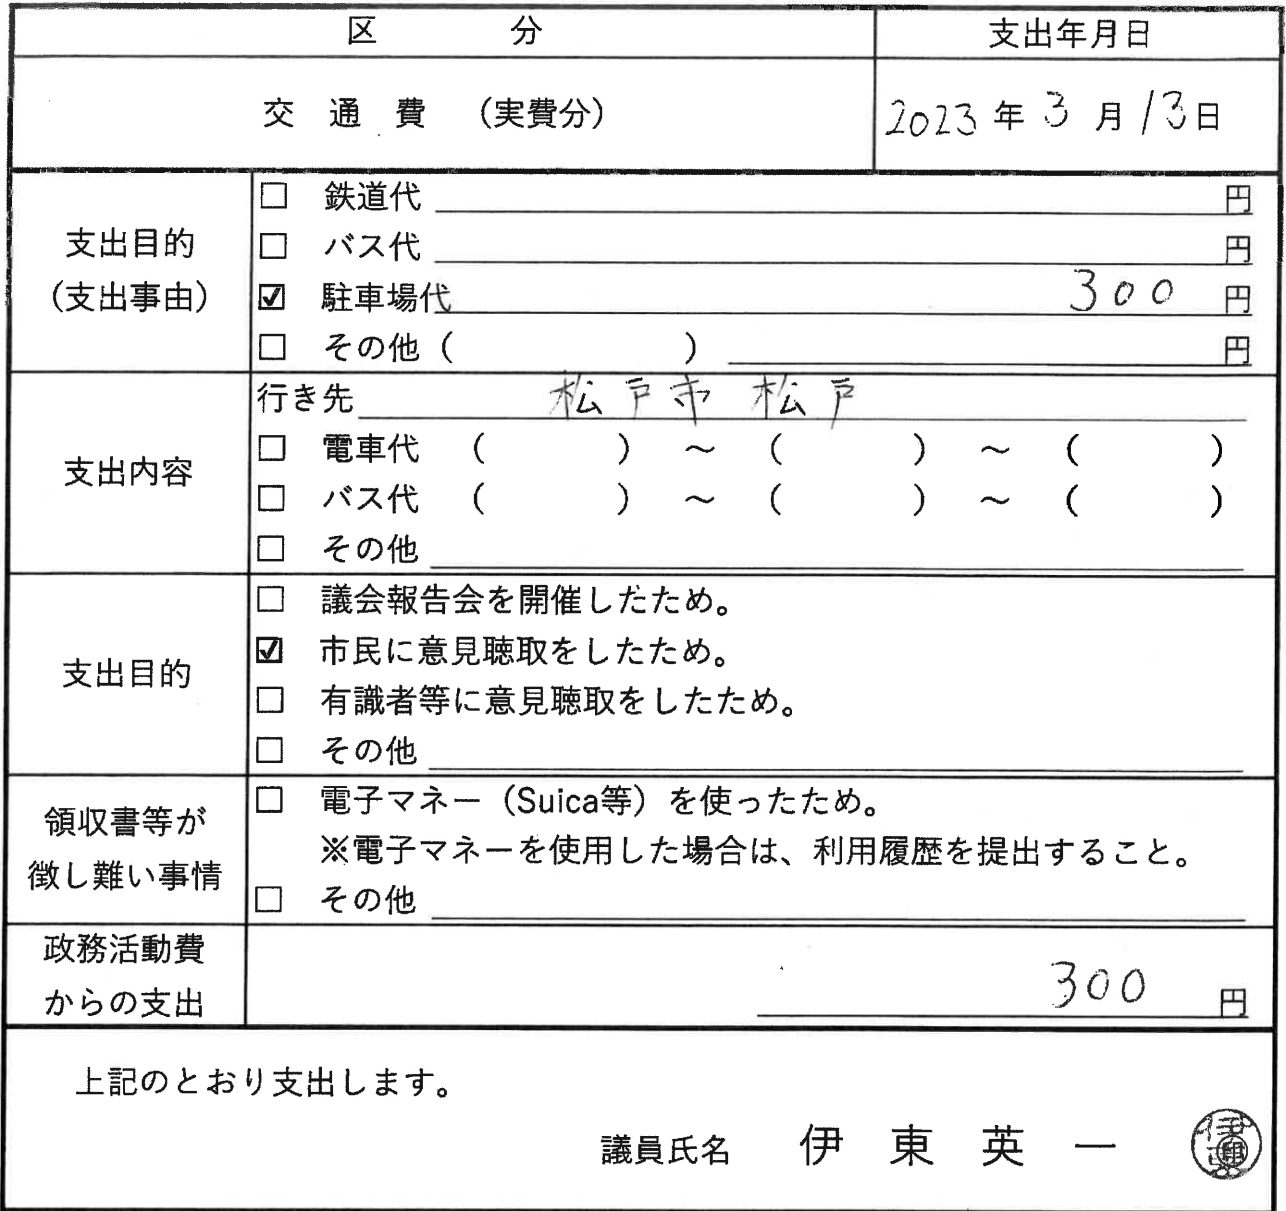 区 分 支出年月日
交 通 費 （実費分） 2023 年 3 月 13 日
支出目的
（支出事由）
□ 鉄道代 円
□ バス代 円
☑ 駐車場代 300 円
□ その他（ ） 円
支出内容
行き先 松戸市 松戸
□ 電車代 （ ） ～ （ ） ～ （ ）
□ バス代 （ ） ～ （ ） ～ （ ）
□ その他
支出目的
□ 議会報告会を開催したため。
☑ 市民に意見聴取をしたため。
□ 有識者等に意見聴取をしたため。
□ その他
領収書等が
徴し難い事情
□ 電子マネー（Suica等）を使ったため。
※電子マネーを使用した場合は、利用履歴を提出すること。
□ その他
政務活動費
からの支出
300 円
上記のとおり支出します。
議員氏名 伊 東 英 一 印